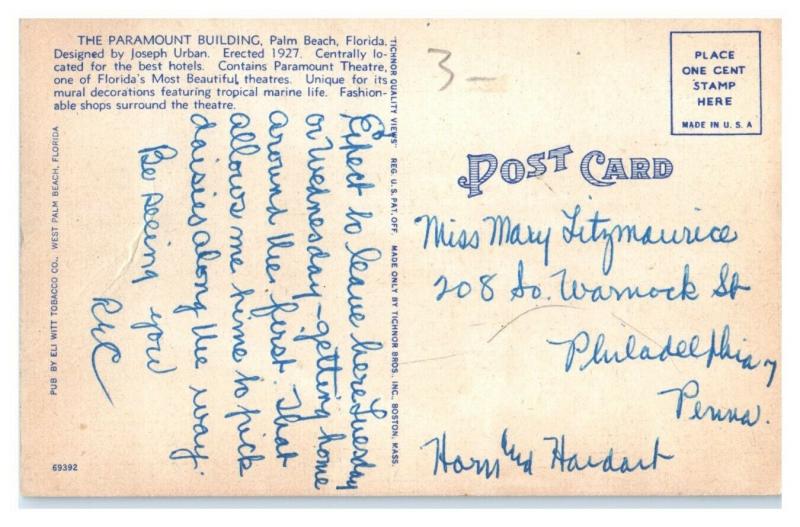 THE PARAMOUNT BUILDING, Palm Beach, Florida.
Designed by Joseph Urban. Erected 1927. Centrally lo-
cated for the best hotels. Contains Paramount Theatre,
one of Florida's Most Beautiful theatres. Unique for its
mural decorations featuring tropical marine life. Fashion-
able shops surround the theatre.
Expect to leave here Tuesday
or Wednesday - getting home
around the first. That
allows me time to pick
daisies along the way.
Be seeing you
RHC
PUB BY ELI WITT TOBACCO CO., WEST PALM BEACH, FLORIDA
69392
"TICHNOR QUALITY VIEWS" REG. U. S. PAT. OFF. MADE ONLY BY TICHNOR BROS., INC., BOSTON, MASS.
3-
POST CARD
PLACE
ONE CENT
STAMP
HERE
MADE IN U. S. A
Miss Mary Fitzmaurice
208 So. Warnock St
Philadelphia,
Penna.
Horn and Hardart